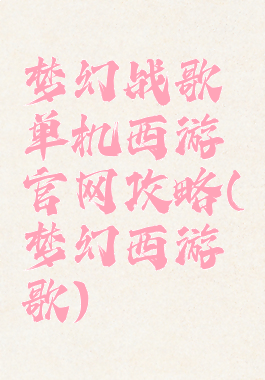 梦幻战歌
单机西游
官网攻略(
梦幻西游
歌)